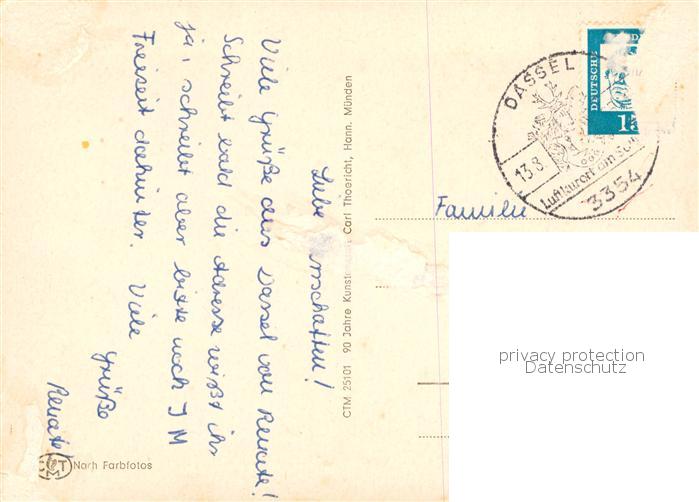 Liebe nschaften!
Viele Grüße aus Dassel von Renate!
Schreibt bald die Adresse wißt ihr
ja, schreibt aber bitte noch J M
Freizeit dahinter. Viele
Grüße
Renate!
CTM 25101 90 Jahre Kunst Carl Thoericht, Hann. Münden
CTM
Nach Farbfotos
DEUTSCHE
15
DASSEL
13.8
Luftkurort am
3354
Familie
privacy protection
Datenschutz